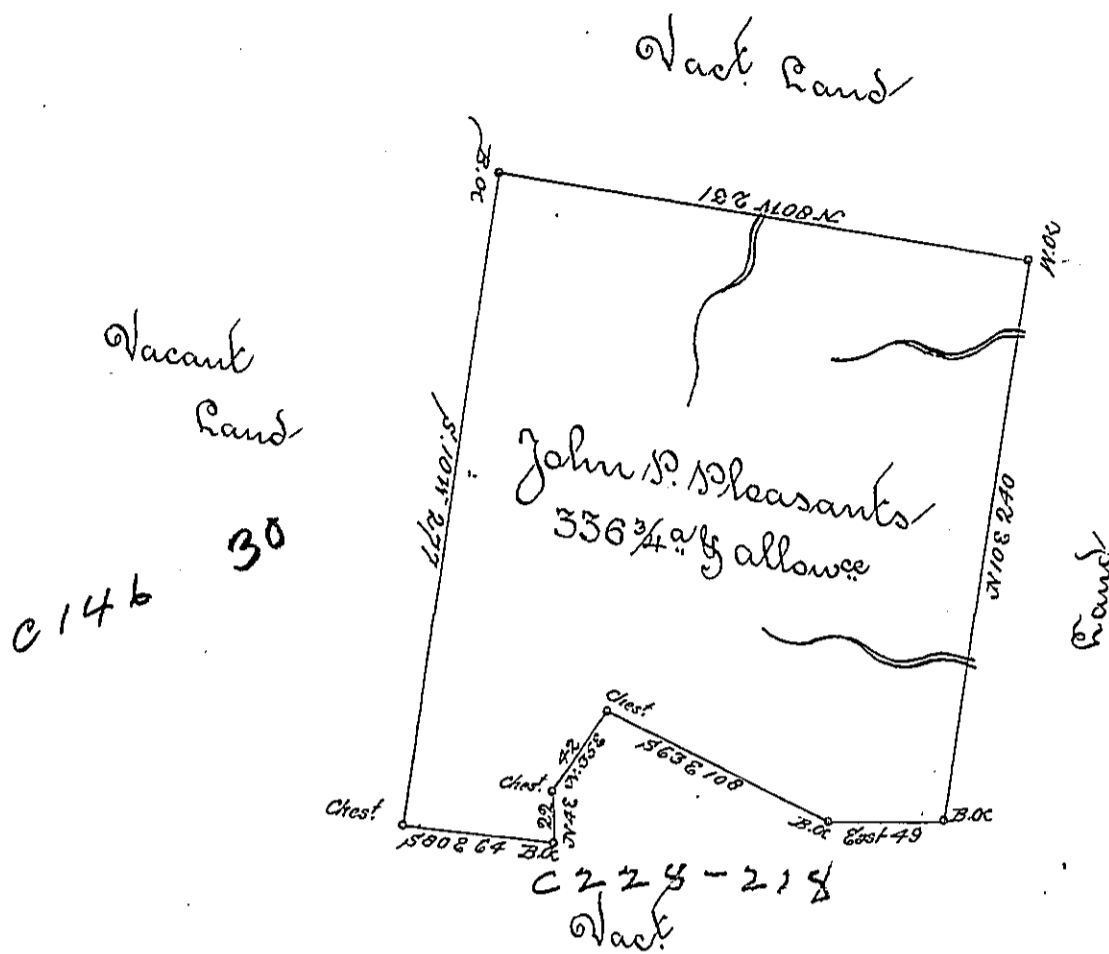 Vact. Land
B.Oc
N80W 231
W.Oc
Vacant
Land
S.10W 277
John P. Pleasants
336 3/4 a & allowce
N10E 240
Land
30
C146
Chest
Chest.
42
N.35E
S63E 108
Chest.
22
N4E
S80E 64
B.Oc
B.Oc
East 49
B.Oc
C228-218
Vact.